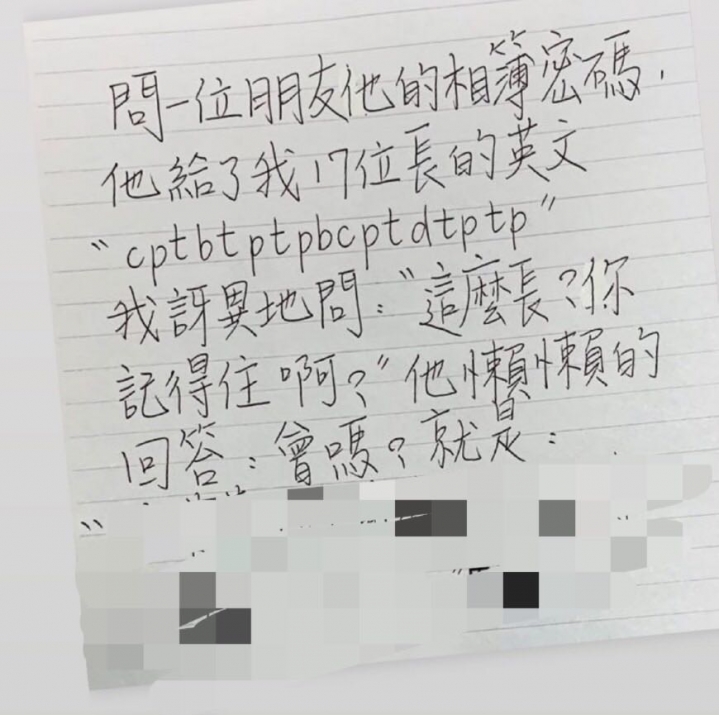 問一位朋友他的相簿密碼,
他給了我17位長的英文
“cptbtptpbcptdtptp”
我訝異地問:“這麼長?你
記得住啊?”他懶懶的
回答:曾嗎?就是: